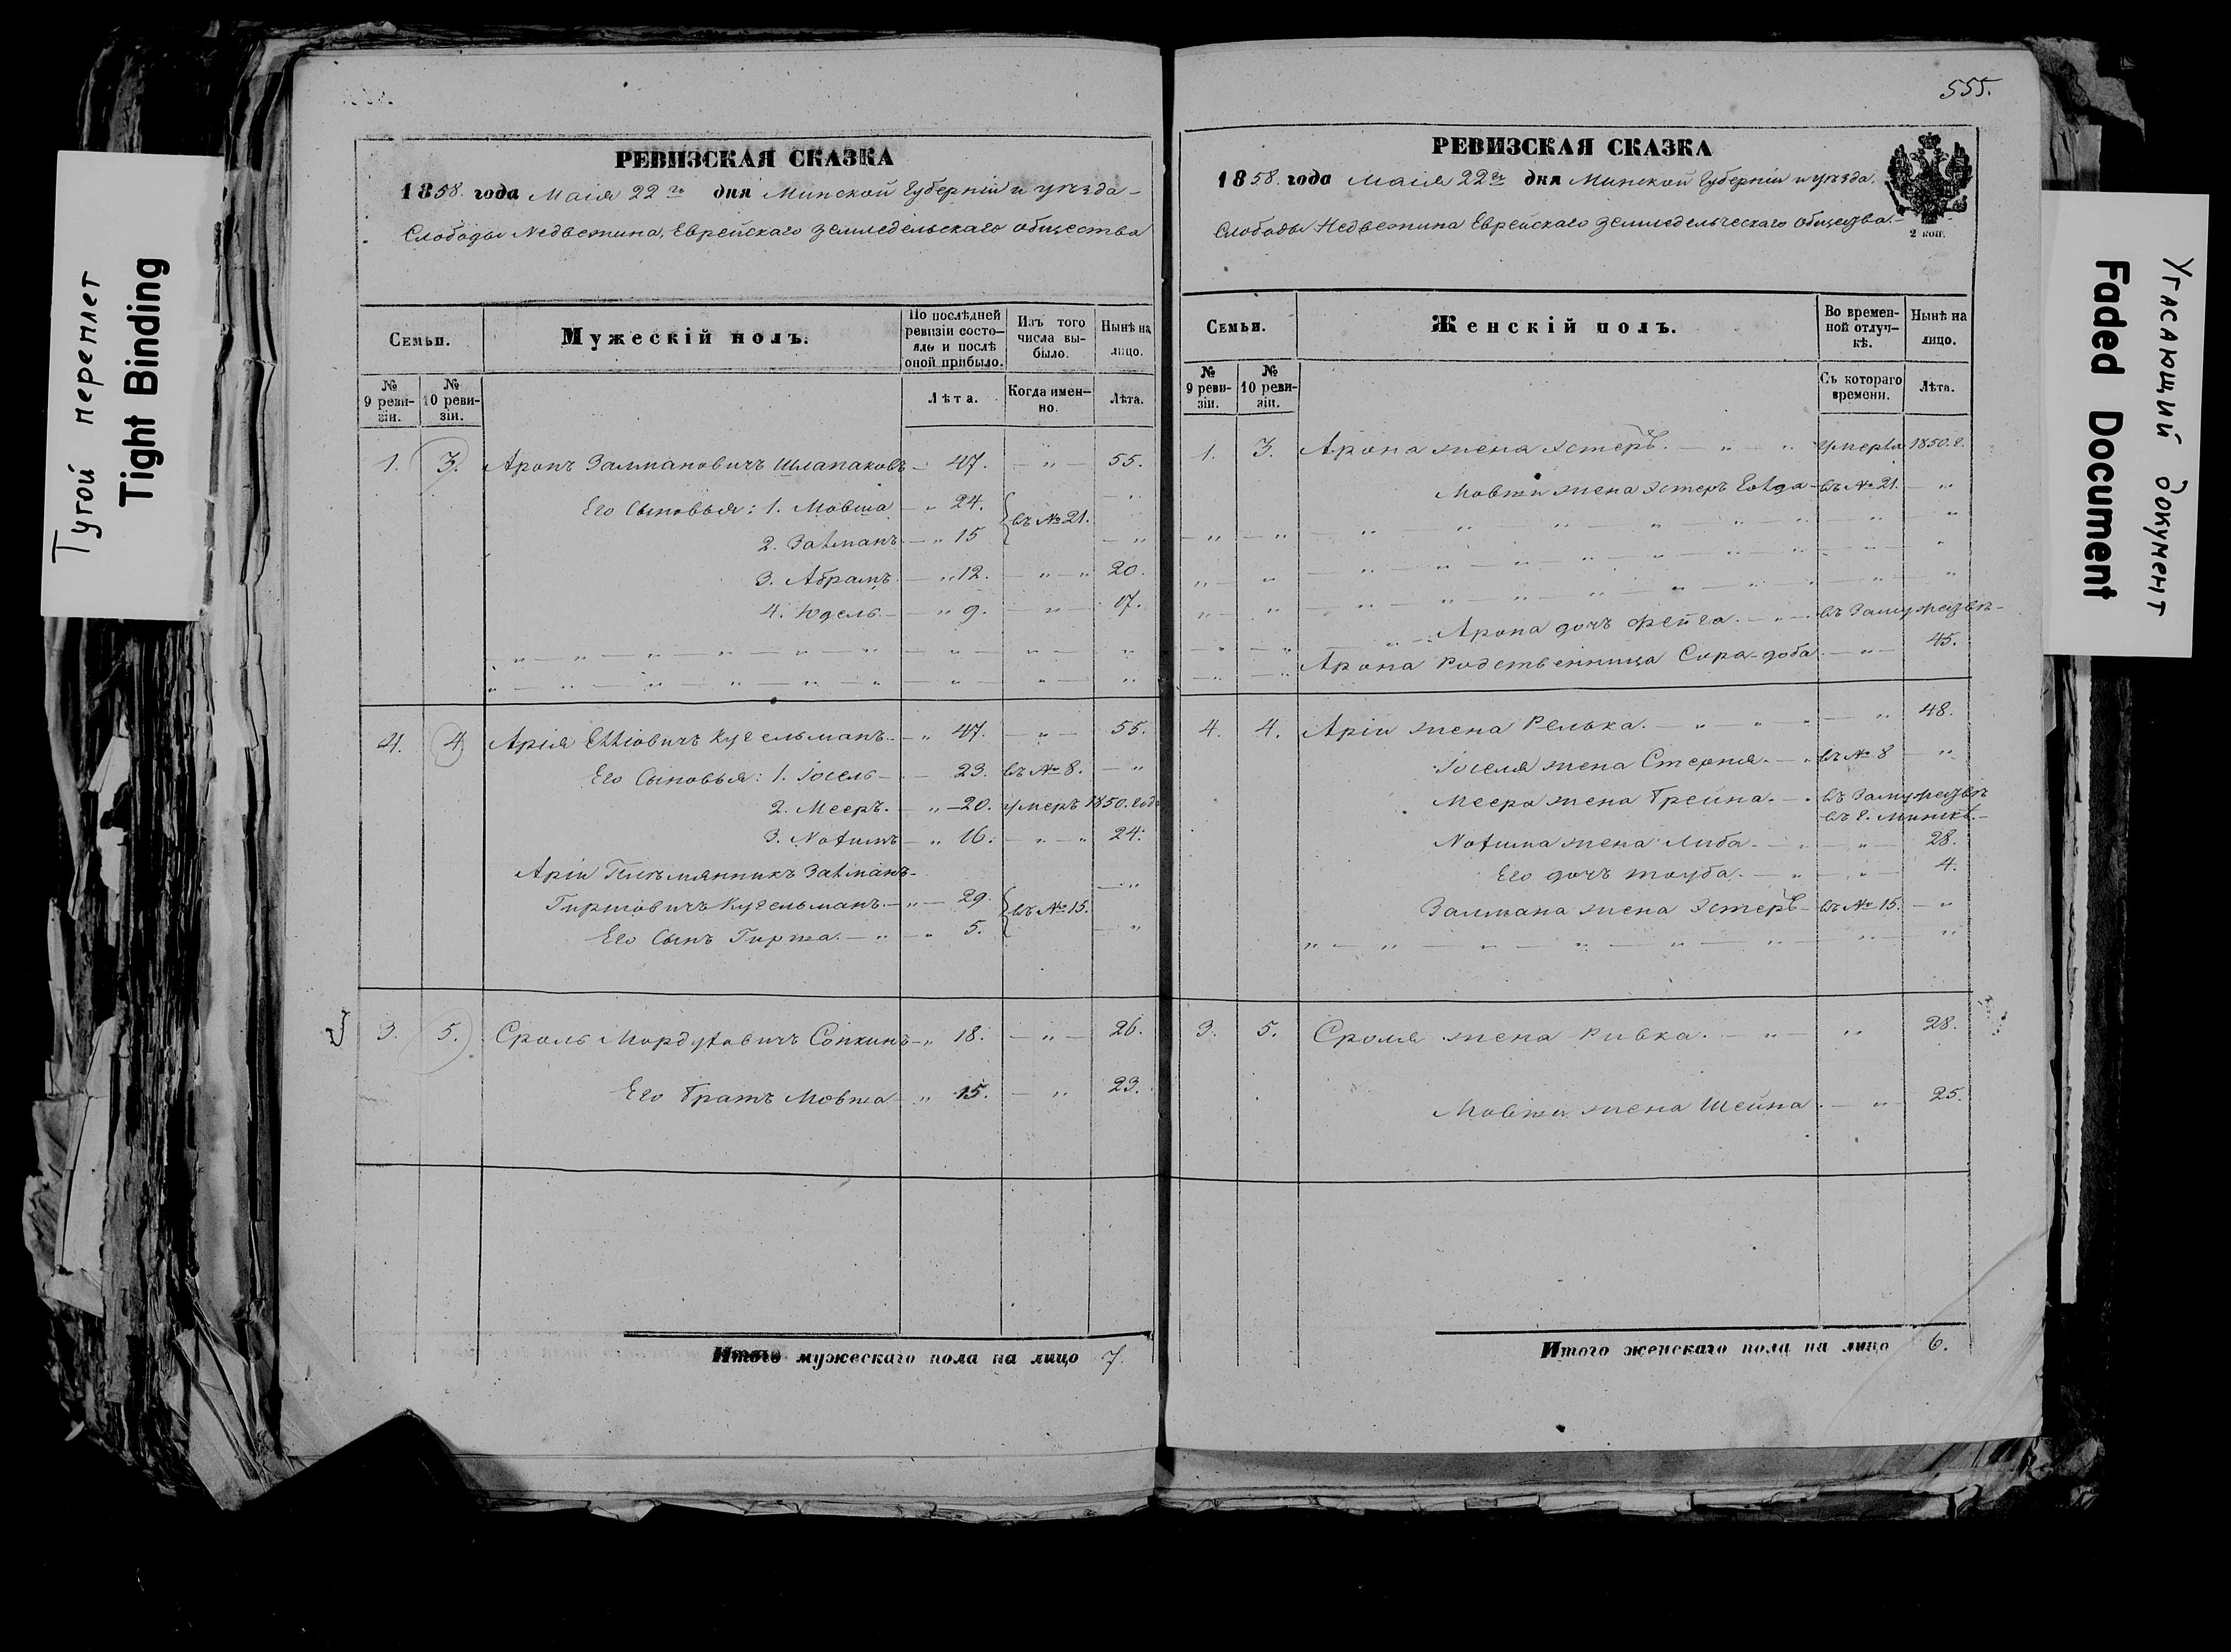 555.
Тугой переплет
Tight Binding
РЕВИЗСКАЯ СКАЗКА
1858. года Маія 22го дня Минской Губерніи и уѣзда
Слободы Медвежина, Еврейскаго Земледельскаго общества
Семьи.
Мужескій полъ.
По послѣдней ревизіи состояло и послѣ оной прибыло.
Изъ того числа выбыло.
Нынѣ на лицо.
№ 9 ревизіи.
№ 10 ревизіи.
Лѣта.
Когда именно.
Лѣта.
1. 3. Аронъ Залмановичъ Шлапаковъ 47. 55.
Его Сыновья: 1. Мовша 24.
въ № 21.
2. Залманъ 15
3. Абрамъ 12. 20.
4. Юдель 9. 17.
4. 4 Арія Еллiовичъ Кугельманъ 47. 55.
Его Сыновья: 1. Іосель 23. въ № 8.
2. Мееръ. 20. умеръ 1850. год
3. Нотимъ 16. 24.
Аріи Племянникъ Залманъ
Гиршовичъ Кугельманъ 29 въ № 15.
Его Сынъ Гирша. 5.
3. 5. Сроль Мордуховичъ Сопкинъ 18. 26.
Его Братъ Мовша 15. 23.
Итого мужескаго пола на лицо 7.
РЕВИЗСКАЯ СКАЗКА
1858. года Маія 22го дня Минской Губерніи и уѣзда.
Слободы Медвежина Еврейскаго Земледельческаго общества
2 коп.
Семьи.
Женскій полъ.
Во временной отлучкѣ.
Нынѣ на лицо.
№ 9 ревизіи.
№ 10 ревизіи.
Съ котораго времени.
Лѣта.
1. 3. Арона жена Эстеръ. умерла 1850. г.
Мовши жена Эстеръ Голда въ № 21.
Арона дочъ Фейга. въ Замужествѣ
Арона Родственница Сора-доба 45.
4. 4. Аріи жена Релька. 48.
Іоселя жена Стерня. въ № 8
Меера жена Грейна. въ Замужествѣ
въ г. Минскѣ.
Нотима жена Либа. 28.
Его дочъ Тауба. 4.
Залмана жена Эстеръ въ № 15.
3. 5. Сроля жена Ривка. 28.
Мовши жена Шейна 25.
Итого женскаго пола на лицо 6.
Угасающий документ
Faded Document